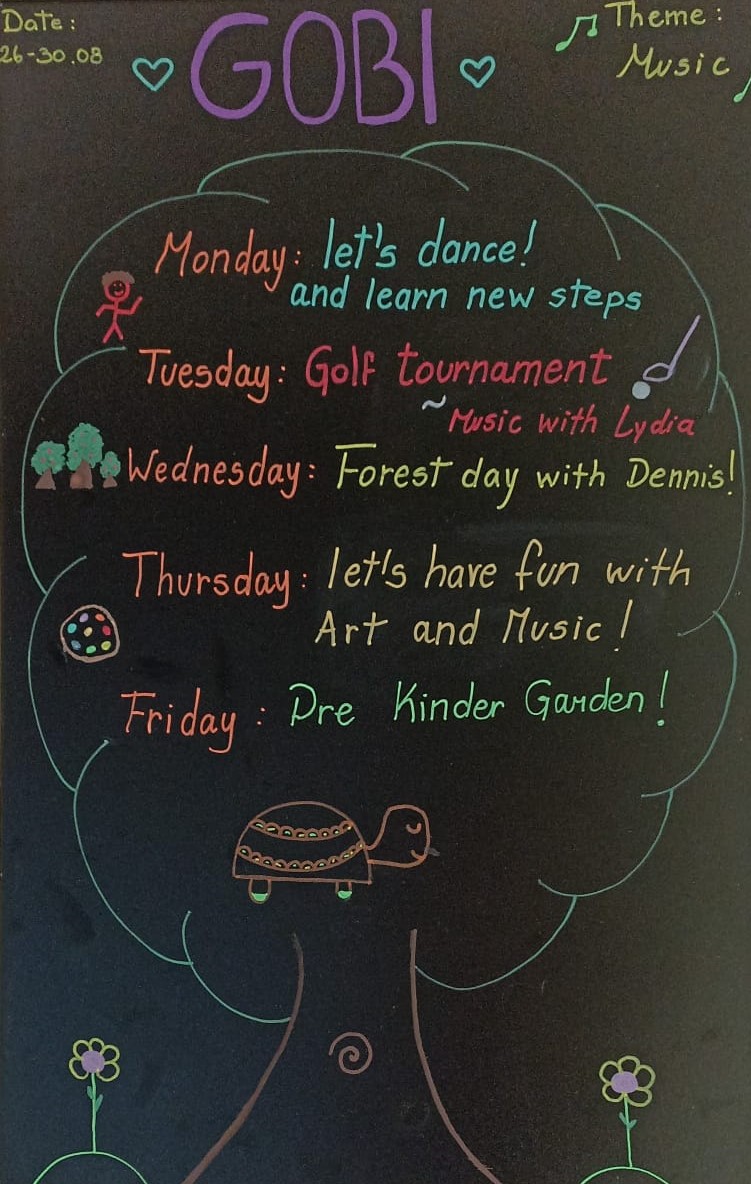 Date:
26-30.08
GOBI
Theme:
Music
Monday: let's dance!
and learn new steps
Tuesday: Golf tournament
~Music with Lydia
Wednesday: Forest day with Dennis!
Thursday: let's have fun with
Art and Music!
Friday: Pre Kinder Garden!